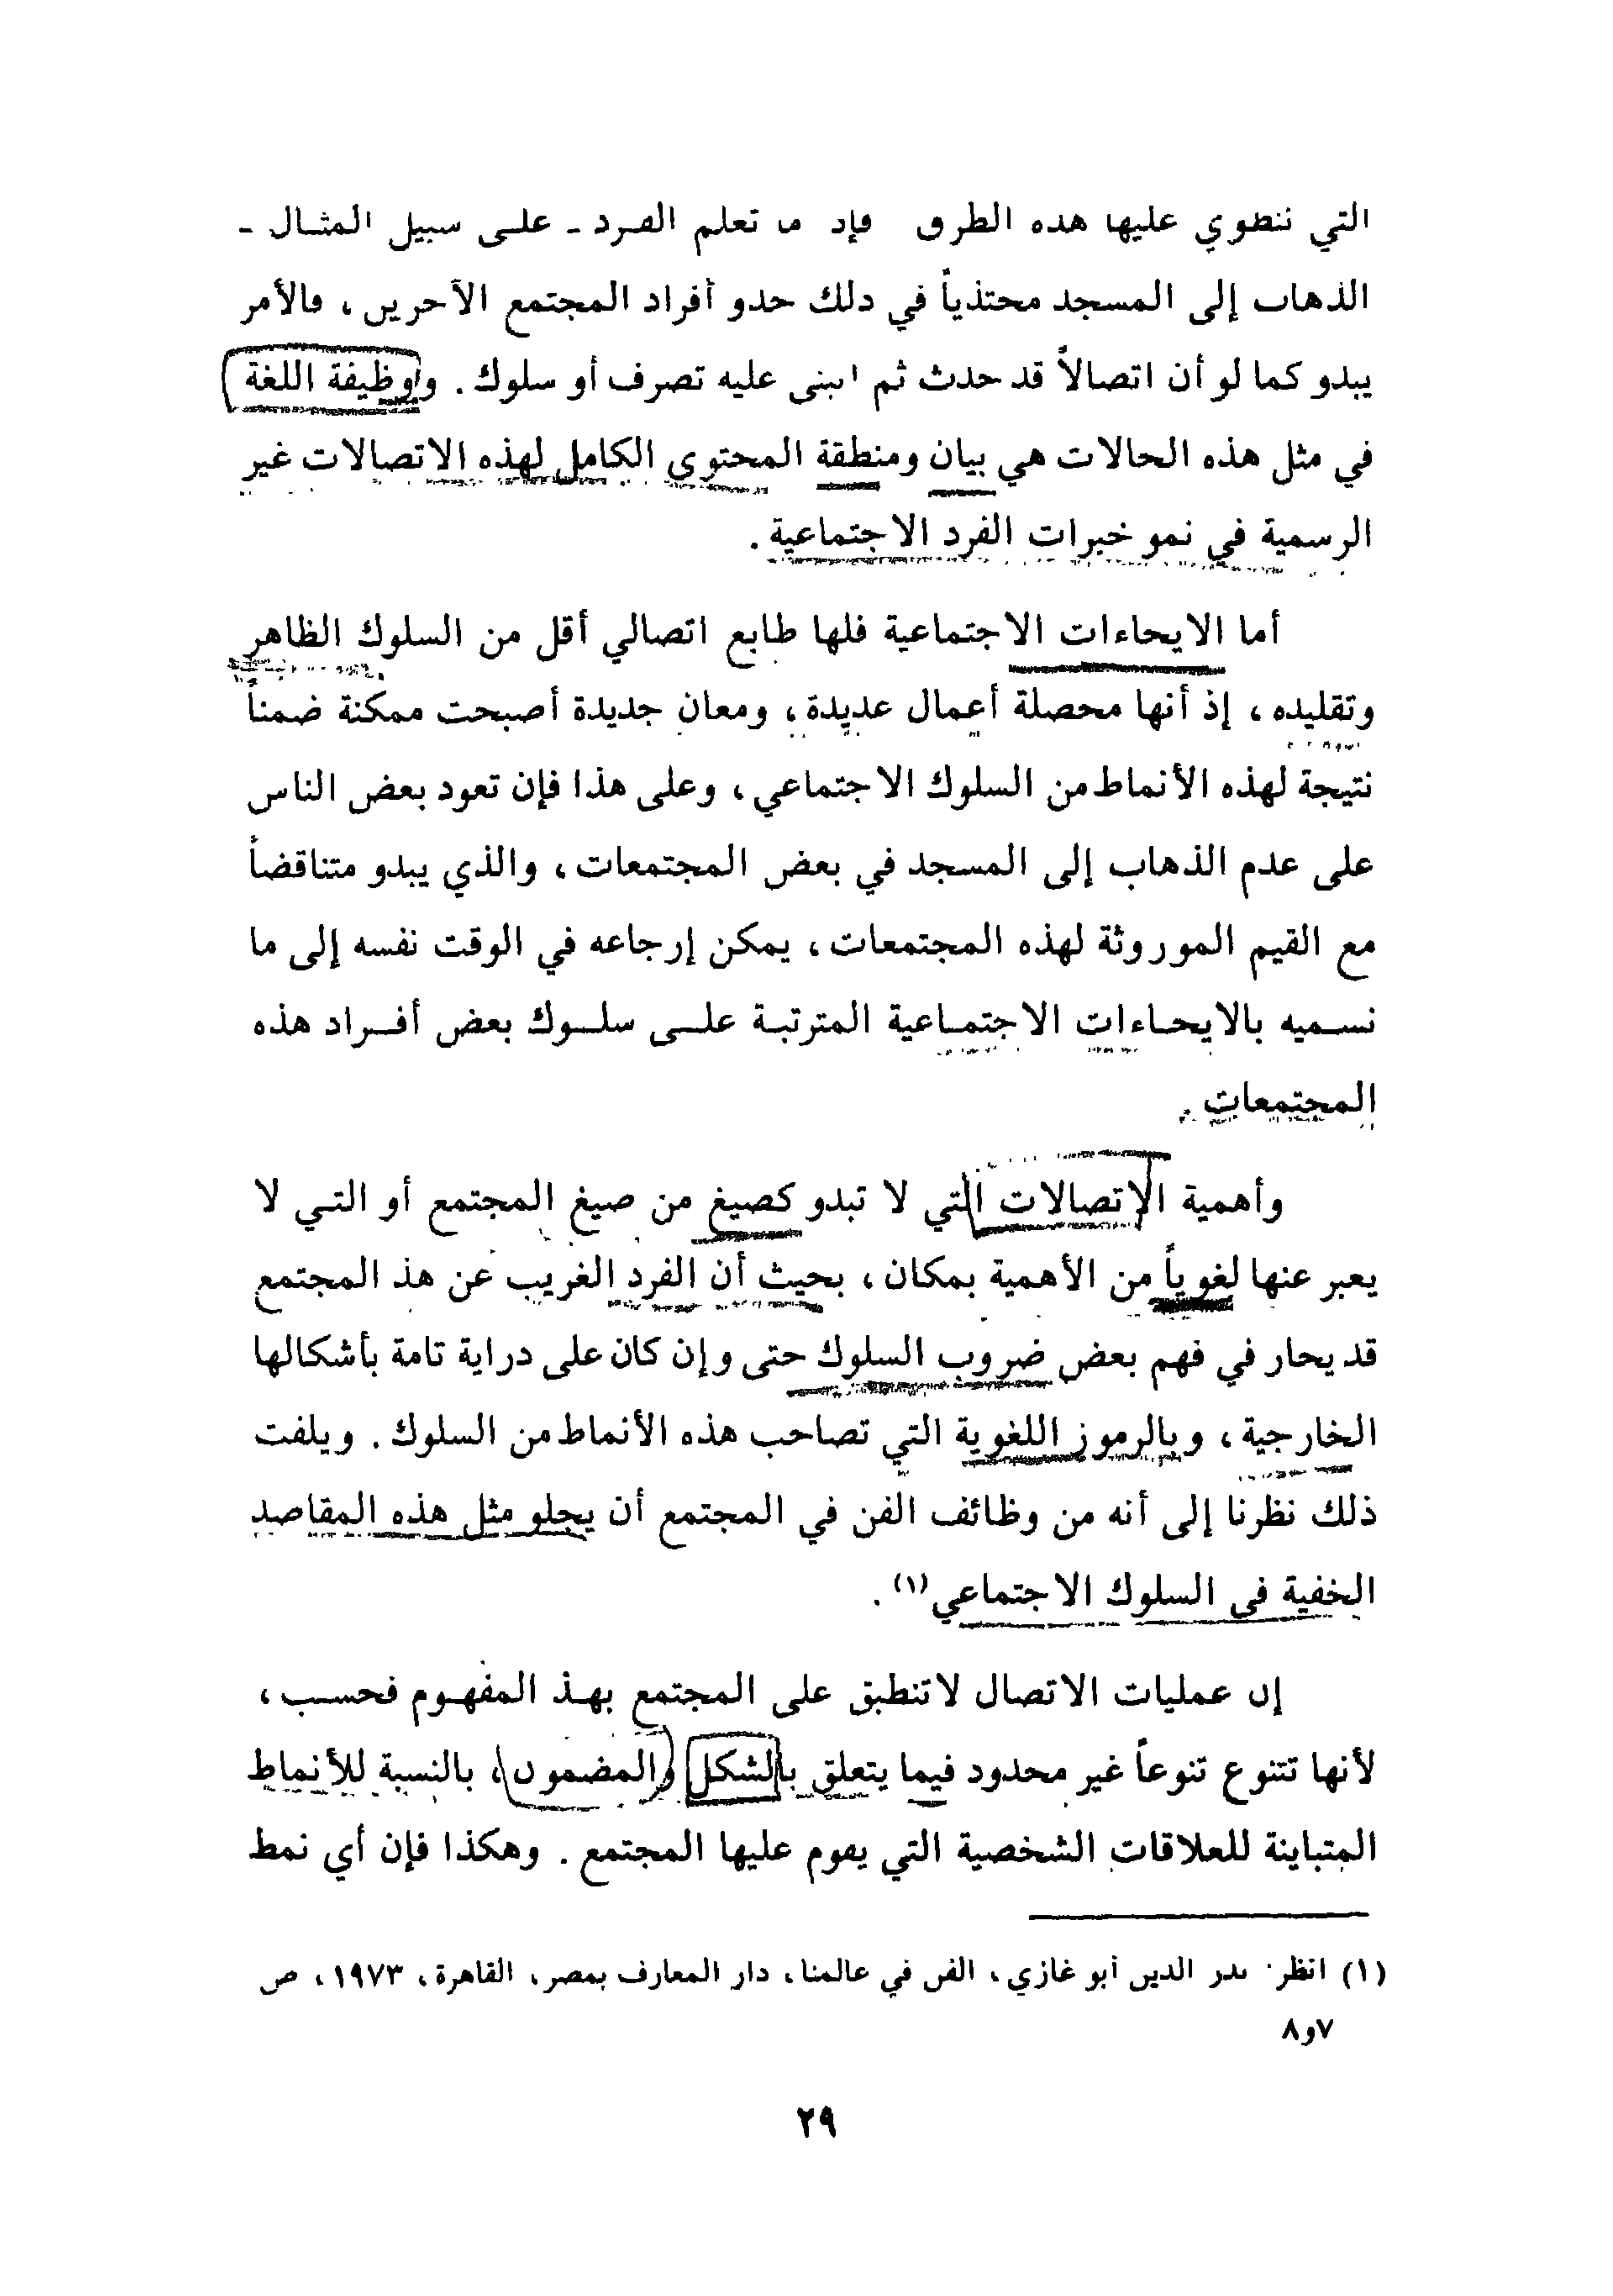 التي تنطوي عليها هذه الطرق فإد ما تعلم الفرد ـ على سبيل المثال ـ
الذهاب إلى المسجد محتذياً في ذلك حذو أفراد المجتمع الآخرين ، فالأمر
يبدو كما لو أن اتصالاً قد حدث ثم انبنى عليه تصرف أو سلوك . ووظيفة اللغة
في مثل هذه الحالات هي بيان ومنطقة المحتوى الكامل لهذه الاتصالات غير
الرسمية في نمو خبرات الفرد الاجتماعية .
أما الايحاءات الاجتماعية فلها طابع اتصالي أقل من السلوك الظاهر
وتقليده ، إذ أنها محصلة أعمال عديدة ، ومعان جديدة أصبحت ممكنة ضمناً
نتيجة لهذه الأنماط من السلوك الاجتماعي ، وعلى هذا فإن تعود بعض الناس
على عدم الذهاب إلى المسجد في بعض المجتمعات ، والذي يبدو متناقضاً
مع القيم الموروثة لهذه المجتمعات ، يمكن إرجاعه في الوقت نفسه إلى ما
نسميه بالايحاءات الاجتماعية المترتبة على سلوك بعض أفراد هذه
المجتمعات .
وأهمية الاتصالات التي لا تبدو كصيغ من صيغ المجتمع أو التي لا
يعبر عنها لغوياً من الأهمية بمكان ، بحيث أن الفرد الغريب عن هذ المجتمع
قد يحار في فهم بعض ضروب السلوك حتى وإن كان على دراية تامة بأشكالها
الخارجية ، وبالرموز اللغوية التي تصاحب هذه الأنماط من السلوك . ويلفت
ذلك نظرنا إلى أنه من وظائف الفن في المجتمع أن يجلو مثل هذه المقاصد
الخفية في السلوك الاجتماعي (١) .
إن عمليات الاتصال لا تنطبق على المجتمع بهذ المفهوم فحسب ،
لأنها تتنوع تنوعاً غير محدود فيما يتعلق بالشكل والمضمون ، بالنسبة للأنماط
المتباينة للعلاقات الشخصية التي يقوم عليها المجتمع . وهكذا فإن أي نمط
(١) انظر بدر الدين أبو غازي ، الفن في عالمنا ، دار المعارف بمصر ، القاهرة ، ١٩٧٣ ، ص
٧و٨
٢٩